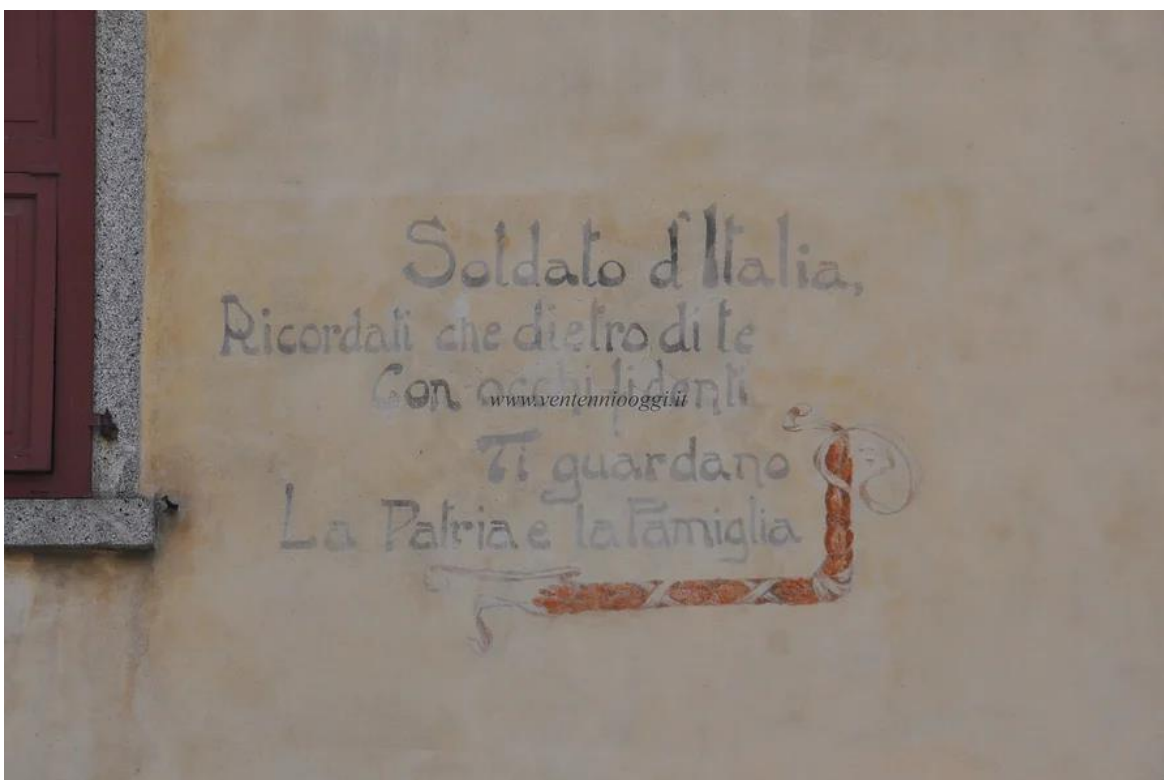 Soldato d'Italia,
Ricordati che dietro di te
Con occhi fidenti
www.ventenniooggi.it
Ti guardano
La Patria e la Famiglia